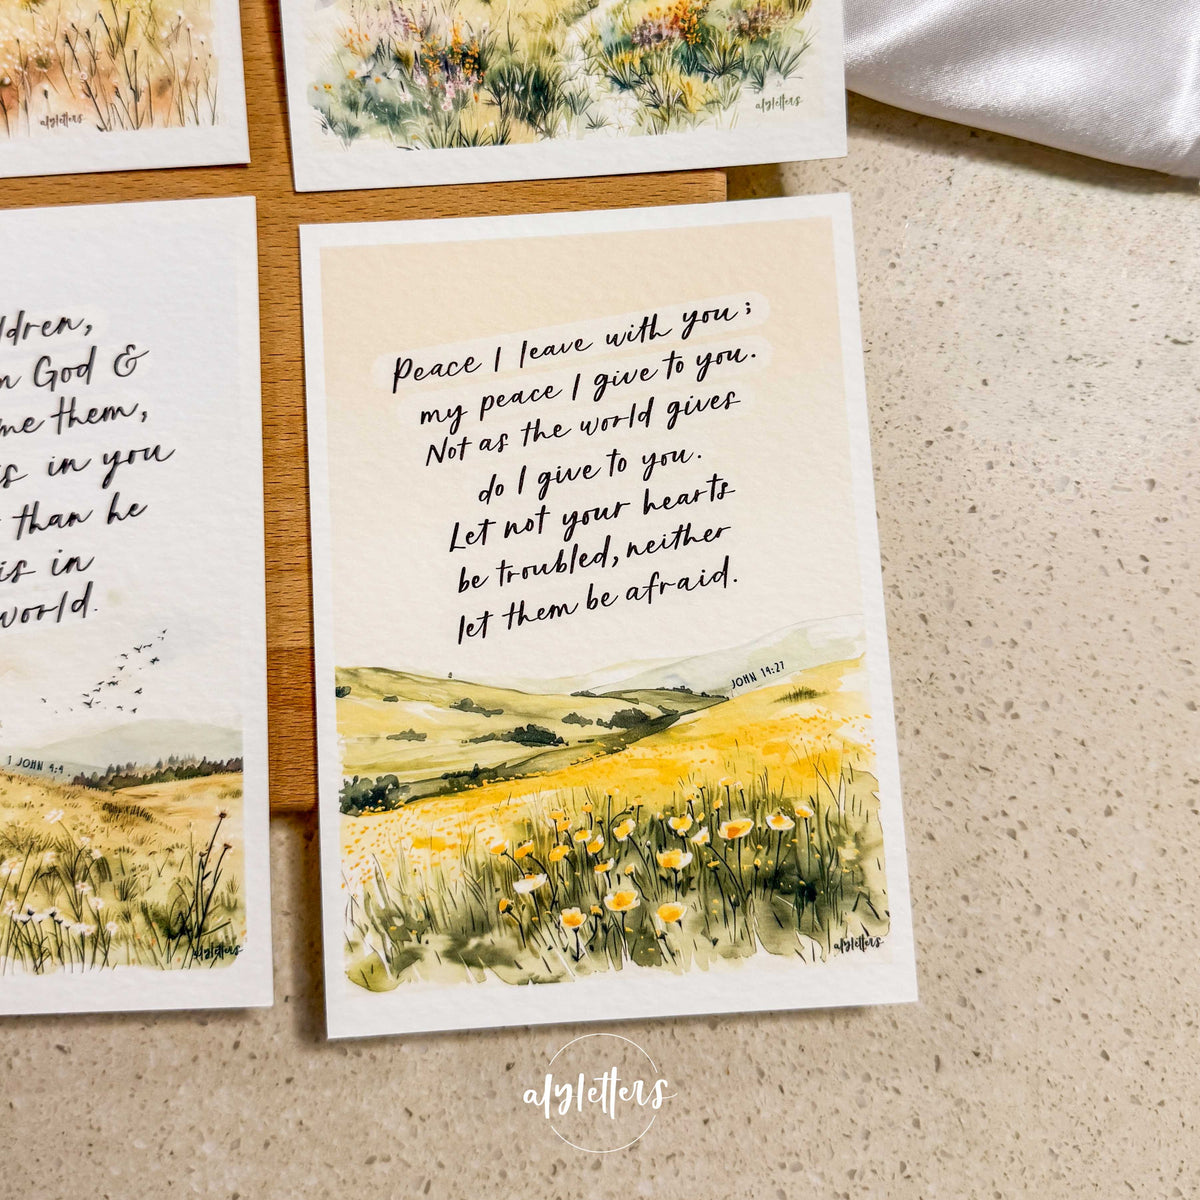 alyletters
alyletters
ldren,
n God &
me them,
is in you
than he
is in
world.
1 JOHN 4:4
alyletters
Peace I leave with you;
my peace I give to you.
Not as the world gives
do I give to you.
Let not your hearts
be troubled, neither
let them be afraid.
JOHN 14:27
alyletters
alyletters